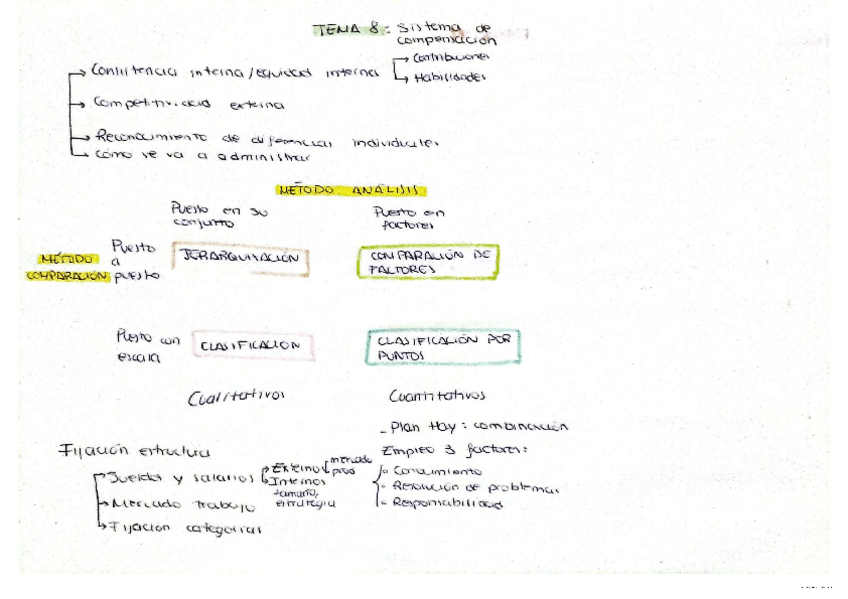 TEMA 8: Sistema de
compensación
→ Consistencia interna/equidad interna
→ Contribuciones
→ Habilidades
→ Competitividad externa
→ Reconocimiento de diferencias individuales
→ Cómo se va a administrar
MÉTODO ANÁLISIS
Puesto en su
conjunto
Puesto en
factores
MÉTODO
COMPARACIÓN
Puesto
a
puesto
JERARQUIZACIÓN
COMPARACIÓN DE
FACTORES
Puesto con
escala
CLASIFICACIÓN
CLASIFICACIÓN POR
PUNTOS
Cualitativos
Cuantitativos
- Plan Hay: combinación
Fijación estructura
Empleo 3 factores:
→ Sueldos y salarios
→ Externo
mercado
prod
→ Internos
tamaño,
estrategia
→ Mercado trabajo
→ Fijación categorías
• Conocimiento
• Resolución de problemas
• Responsabilidad